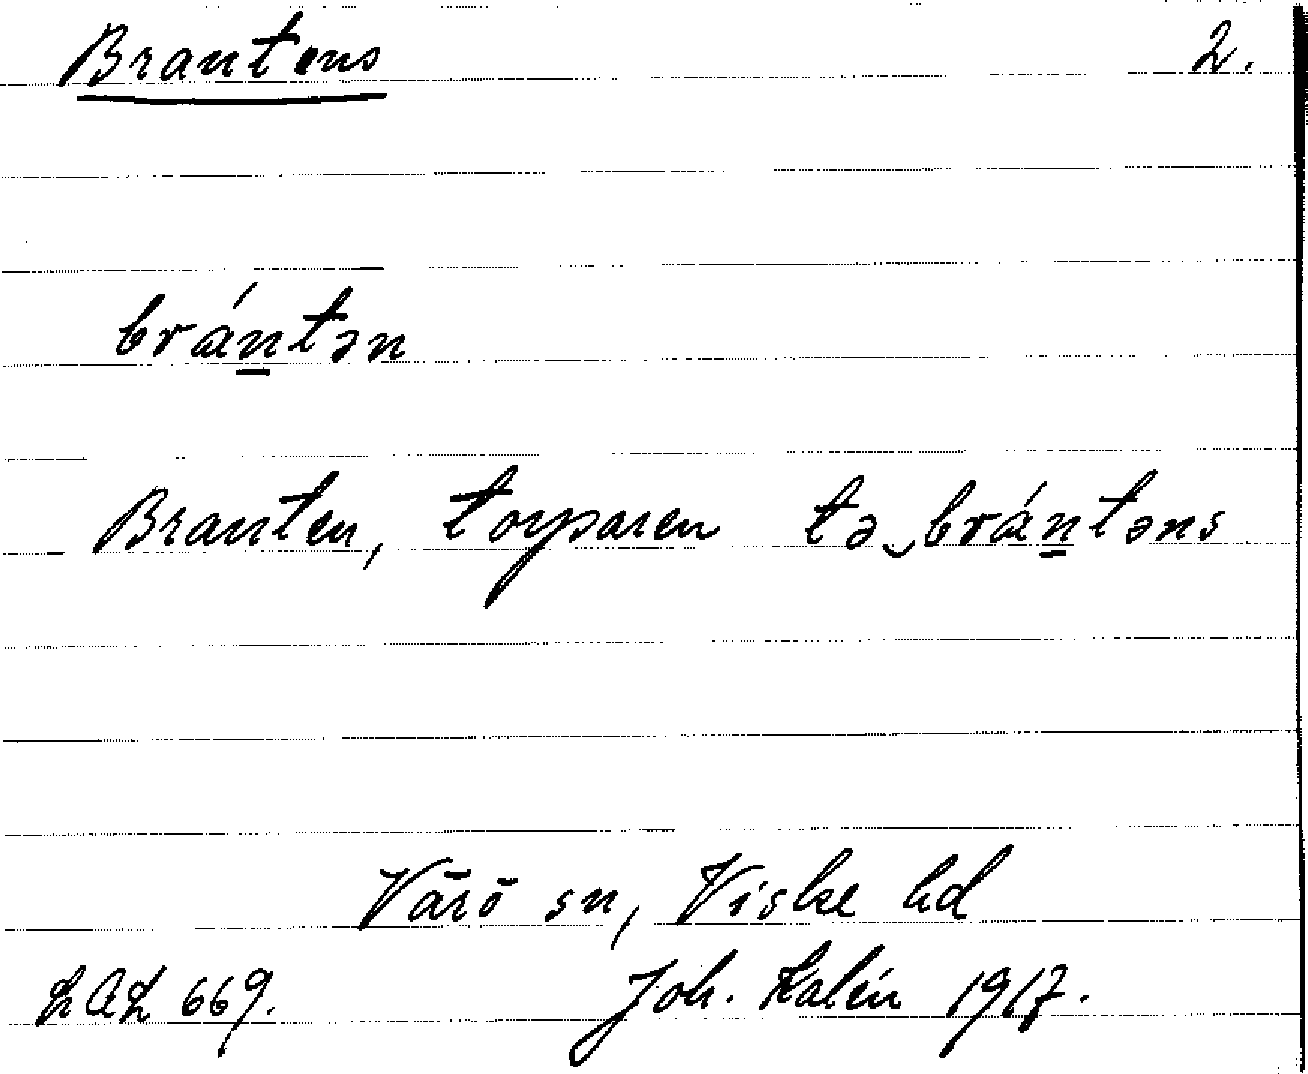 Brantens 2.
brán̲tən
Branten, torparen tə‿brán̲təns
Värö sn, Viske hd
LAL 669. Joh. Kalén 1917.